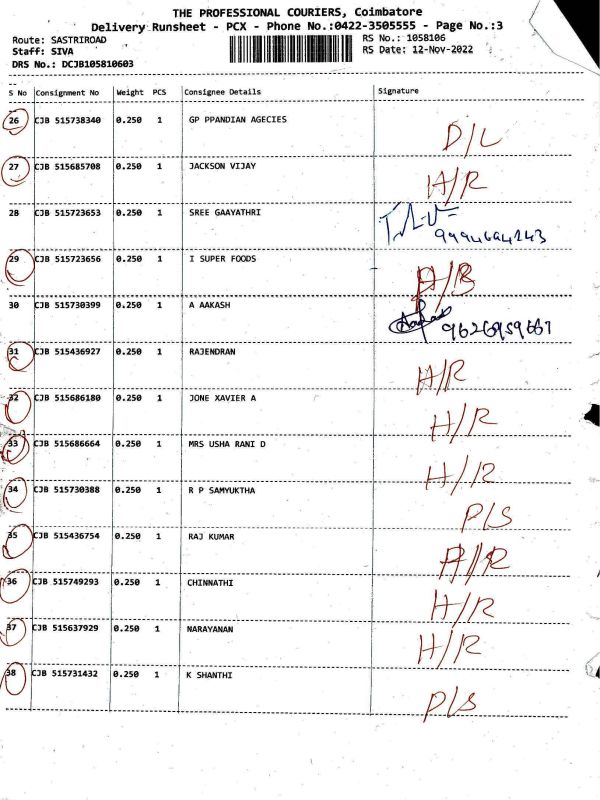 THE PROFESSIONAL COURIERS, Coimbatore
Delivery Runsheet - PCX - Phone No.:0422-3505555 - Page No.:3
Route: SASTRIROAD
RS No.: 1058106
Staff: SIVA
RS Date: 12-Nov-2022
DRS No.: DCJB105810603
S No Consignment No Weight PCS Consignee Details Signature
26 CJB 515738340 0.250 1 GP PPANDIAN AGECIES D/L
27 CJB 515685708 0.250 1 JACKSON VIJAY H/R
28 CJB 515723653 0.250 1 SREE GAAYATHRI
9994694243
29 CJB 515723656 0.250 1 I SUPER FOODS
30 CJB 515730399 0.250 1 A AAKASH 9626959661
31 CJB 515436927 0.250 1 RAJENDRAN H/R
32 CJB 515686180 0.250 1 JONE XAVIER A H/R
33 CJB 515686664 0.250 1 MRS USHA RANI D H/R
34 CJB 515730388 0.250 1 R P SAMYUKTHA P/S
35 CJB 515436754 0.250 1 RAJ KUMAR H/R
36 CJB 515749293 0.250 1 CHINNATHI H/R
37 CJB 515637929 0.250 1 NARAYANAN H/R
38 CJB 515731432 0.250 1 K SHANTHI P/S